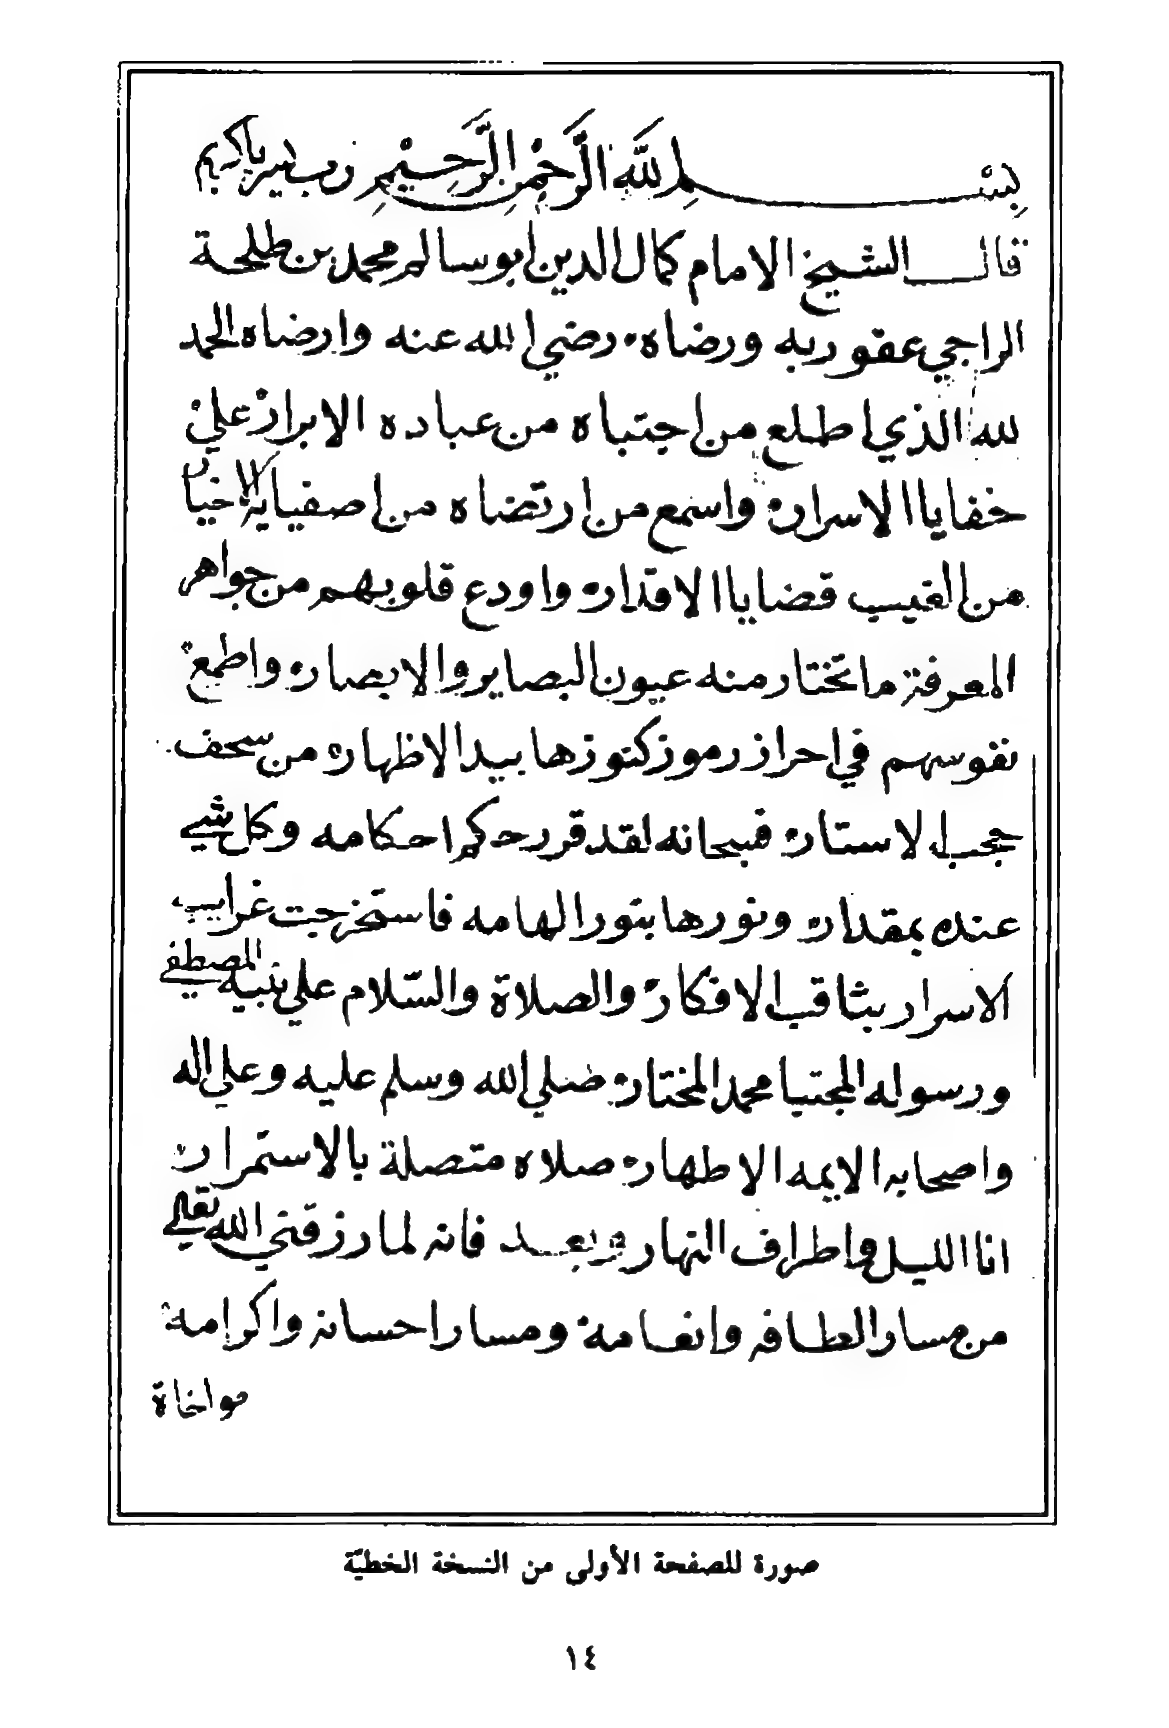 بسم الله الرَّحْمن الرَّحيم رب يسر ياكريم
قال الشيخ الامام كمال الدين ابو سالم محمد بن طلحة
الراجي عفو ربه ورضاه رضي الله عنه وارضاه الحمد
لله الذي اطلع من اجتباه من عباده الابرار علي
خفايا الاسرار واسمع من ارتضاه من اصفيايه الاخيار
من الغيب قضايا الاقدار واودع قلوبهم من جواهر
المعرفة ما تختار منه عيون البصاير والابصار واطمع
نفوسهم في احراز رموز كنوزها بيد الاظهار من سحف
حجب الاستار فسبحانه لقد قرر حكم احكامه وكل شيي
عنده بمقدار ونورها بنور الهامه فاستخرجت غرايب
الاسرار بثاقب الافكار والصلاة والسّلام علي نبيه المصطفي
ورسوله المجتبا محمد المختار صلي الله وسلم عليه وعلي اله
واصحابه الايمه الاطهار صلاه متصلة بالاستمرار
انا الليل واطراف النهار وبعد فانه لما رزقني الله تعالي
من مسار الطافه وانعامه ومسار احسانه واكرامه
مواخاة
صورة للصفحة الأولى من النسخة الخطيّة
١٤